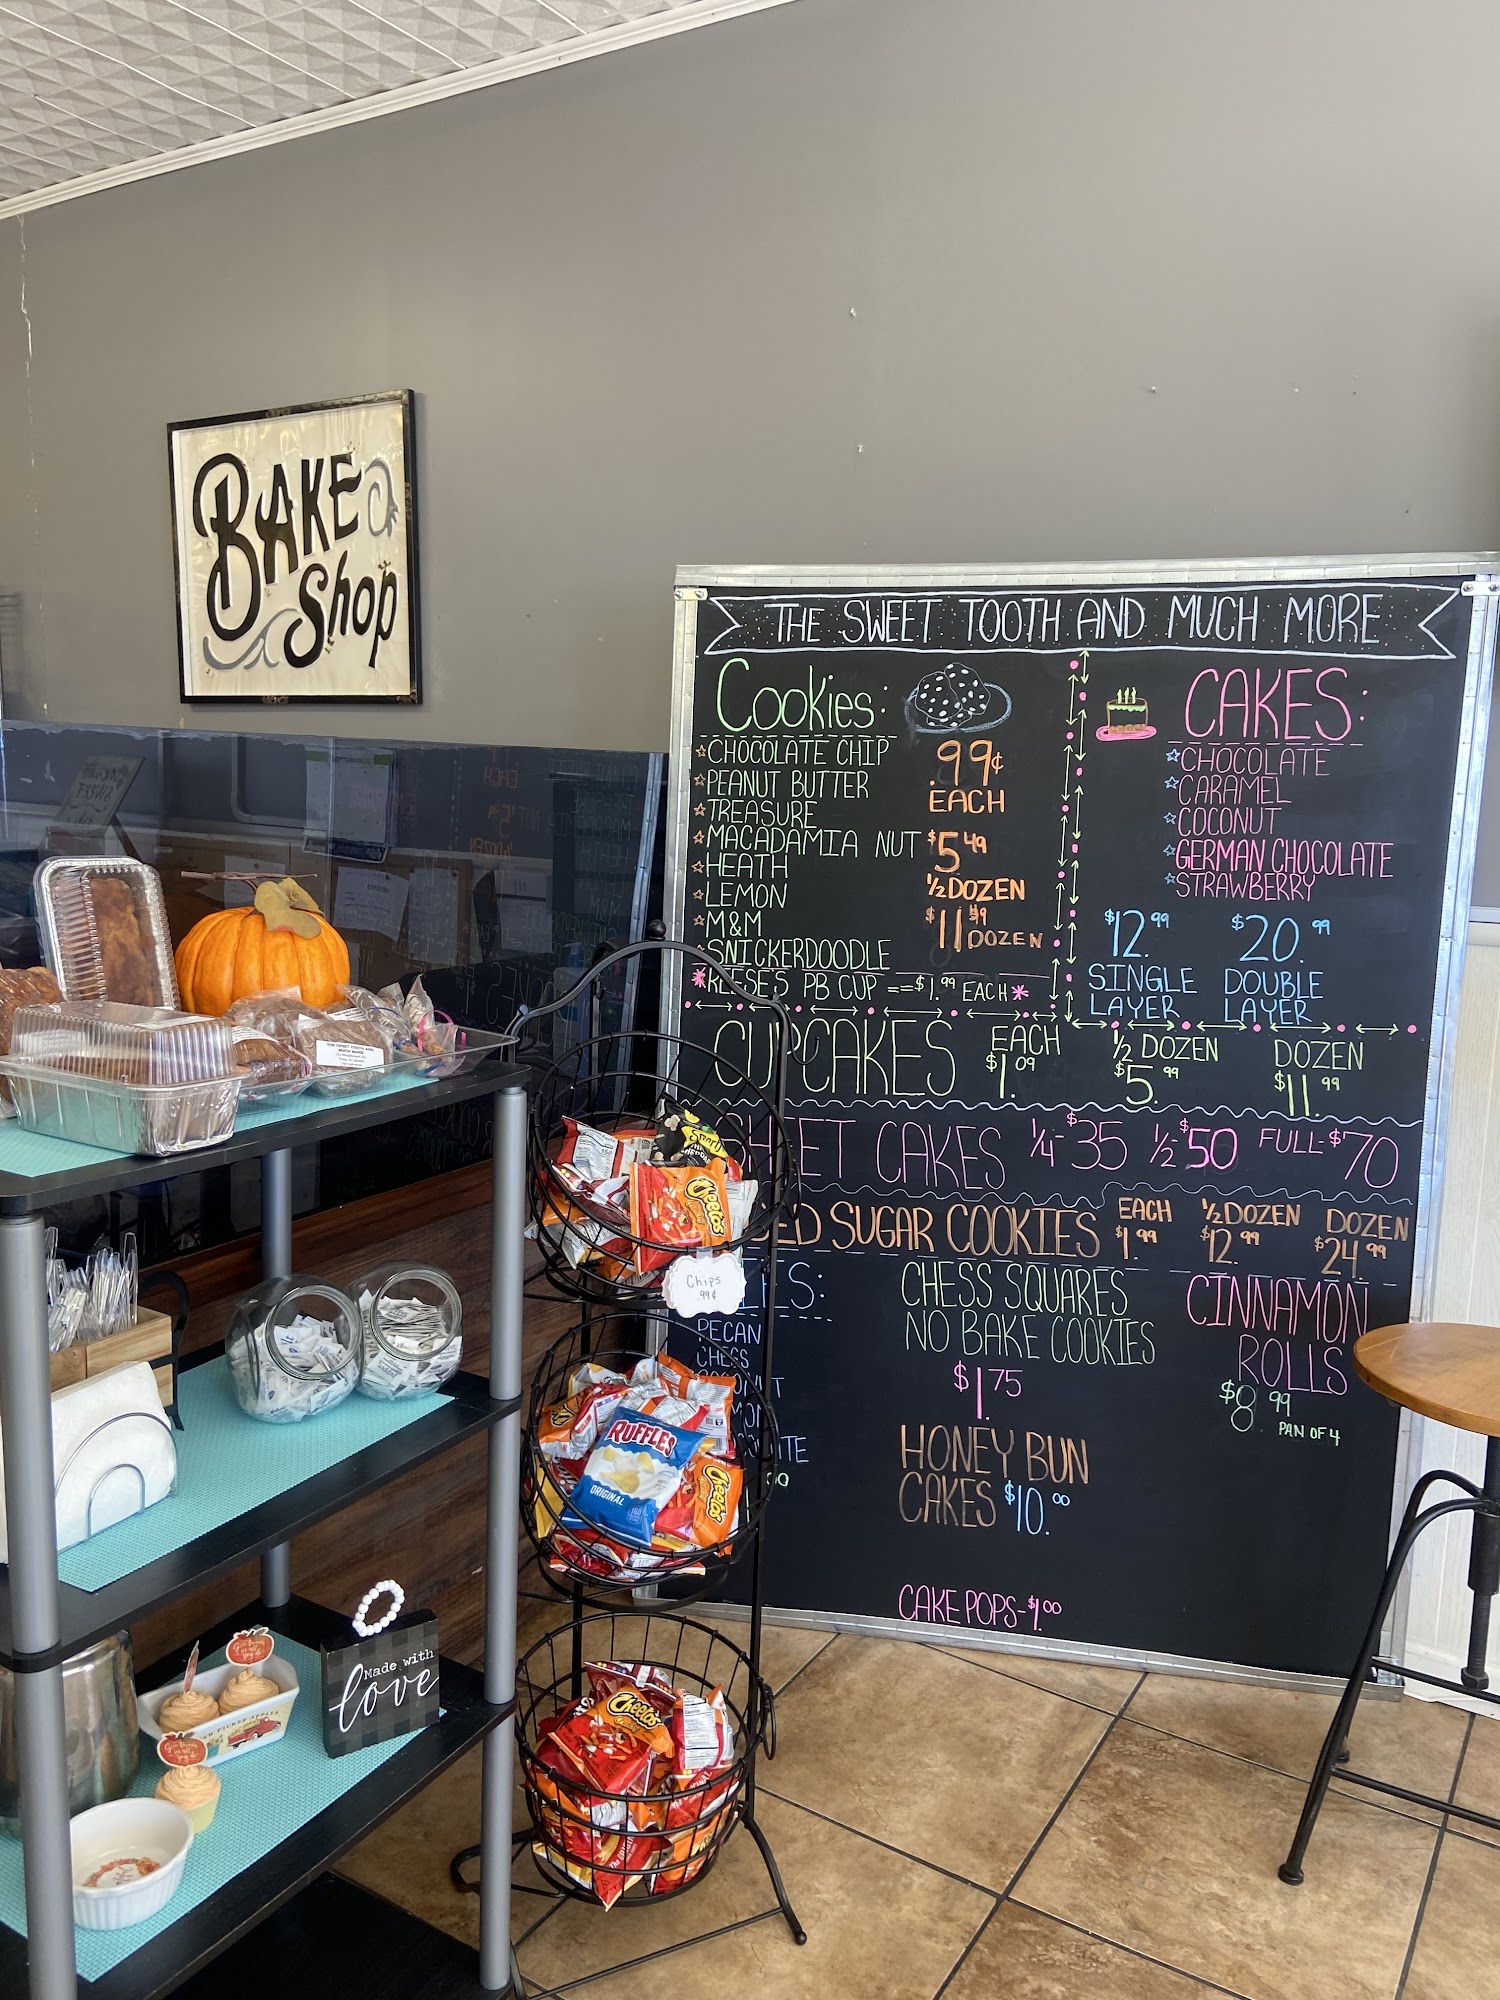 BAKE
Shop
THE SWEET TOOTH AND MUCH MORE
Cookies:
CHOCOLATE CHIP
PEANUT BUTTER
TREASURE
MACADAMIA NUT
HEATH
LEMON
M&M
SNICKERDOODLE
REESE'S PB CUP ==$1.99 EACH
.99¢
EACH
$5.49
1/2 DOZEN
$11.49
DOZEN
CAKES:
CHOCOLATE
CARAMEL
COCONUT
GERMAN CHOCOLATE
STRAWBERRY
$12.99
SINGLE
LAYER
$20.99
DOUBLE
LAYER
CUPCAKES
EACH
$1.09
1/2 DOZEN
$5.99
DOZEN
$11.99
SHEET CAKES 1/4-$35 1/2-$50 FULL-$70
SUGAR COOKIES
EACH
$1.99
1/2 DOZEN
$12.99
DOZEN
$24.99
PECAN
CHESS
CHESS SQUARES
NO BAKE COOKIES
$1.75
HONEY BUN
CAKES $10.00
CAKE POPS-$1.00
CINNAMON
ROLLS
$8.99
PAN OF 4
Chips
.99¢
Cheetos
RUFFLES
ORIGINAL
Cheetos
Cheetos
THE SWEET TOOTH AND
MUCH MORE
Made with
love